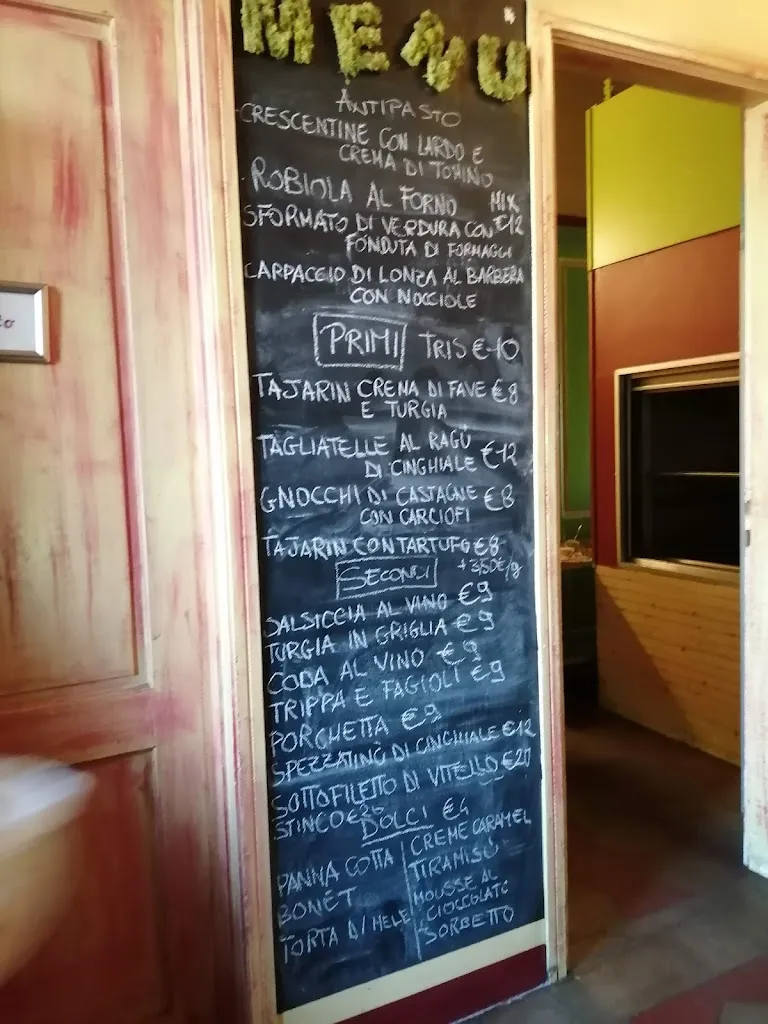 MENU
ANTIPASTO
CRESCENTINE CON LARDO E
CREMA DI TOMINO
ROBIOLA AL FORNO MIX
SFORMATO DI VERDURA CON €12
FONDUTA DI FORMAGGI
CARPACCIO DI LONZA AL BARBERA
CON NOCCIOLE
PRIMI TRIS € 10
TAJARIN CREMA DI FAVE €8
E TURGIA
TAGLIATELLE AL RAGÙ
DI CINGHIALE €12
GNOCCHI DI CASTAGNE €8
CON CARCIOFI
TAJARIN CON TARTUFO €8
SECONDI +3,50€/g
SALSICCIA AL VINO €9
TURGIA IN GRIGLIA €9
CODA AL VINO €9
TRIPPA E FAGIOLI €9
PORCHETTA €9
SPEZZATINO DI CINGHIALE €12
SOTTOFILETTO DI VITELLO €20
STINCO
DOLCI €4
PANNA COTTA
BONÉT
TORTA DI MELE
CREME CARAMEL
TIRAMISÙ
MOUSSE AL
CIOCCOLATO
SORBETTO